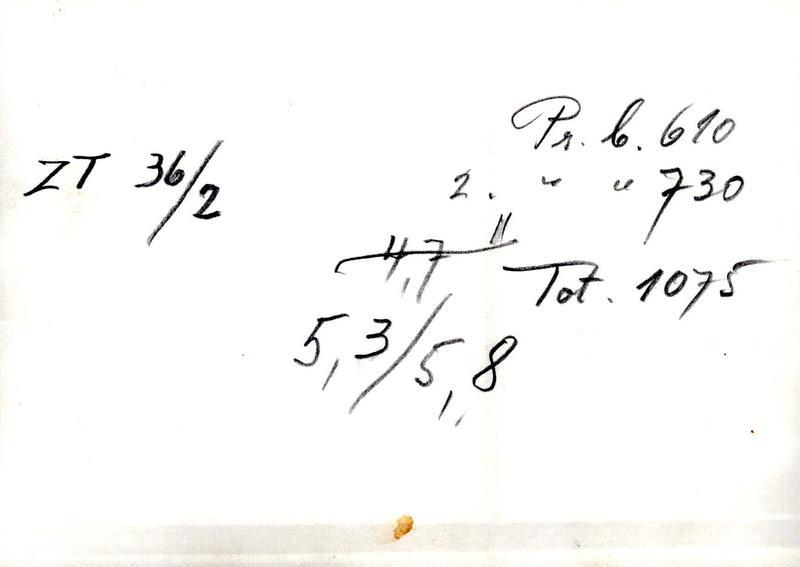 Pr. b. 610
ZT 36/2
2. " " 730
4,7
Tot. 1075
5,3/5,8